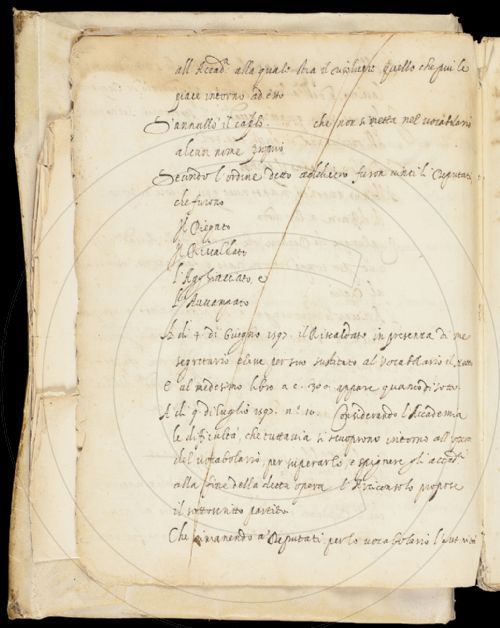 all Accad. alla quale stia il risolvere quello che più le
piace intorno ad esso
S'annullò il caplo. che non si metta nel vocabolario
alcun nome proprio
Secondo l'ordine detto furon vinti li Deputati
che furono
Il Ripieno
Il Riscaldato
l'Agghiacciato, e
A dì 4 di Giugno 1597. il Riscaldato in presenza di me
segretario elesse per suo sustituto al vocabolario il
E al medesimo libro a c. 300 appare quanco di sotto.
A dì 9 di luglio 1597. n.º 10. Considerando l'Accademia
le difficultà, che tuttavia si scuoprono intorno all'
del vocabolario, per superarle, e spignere gli accadi
alla fine della detta opera l'Arciconsolo propose
il sottoscritto partito
Che rimanendo a' Deputati per lo vocabolario l'